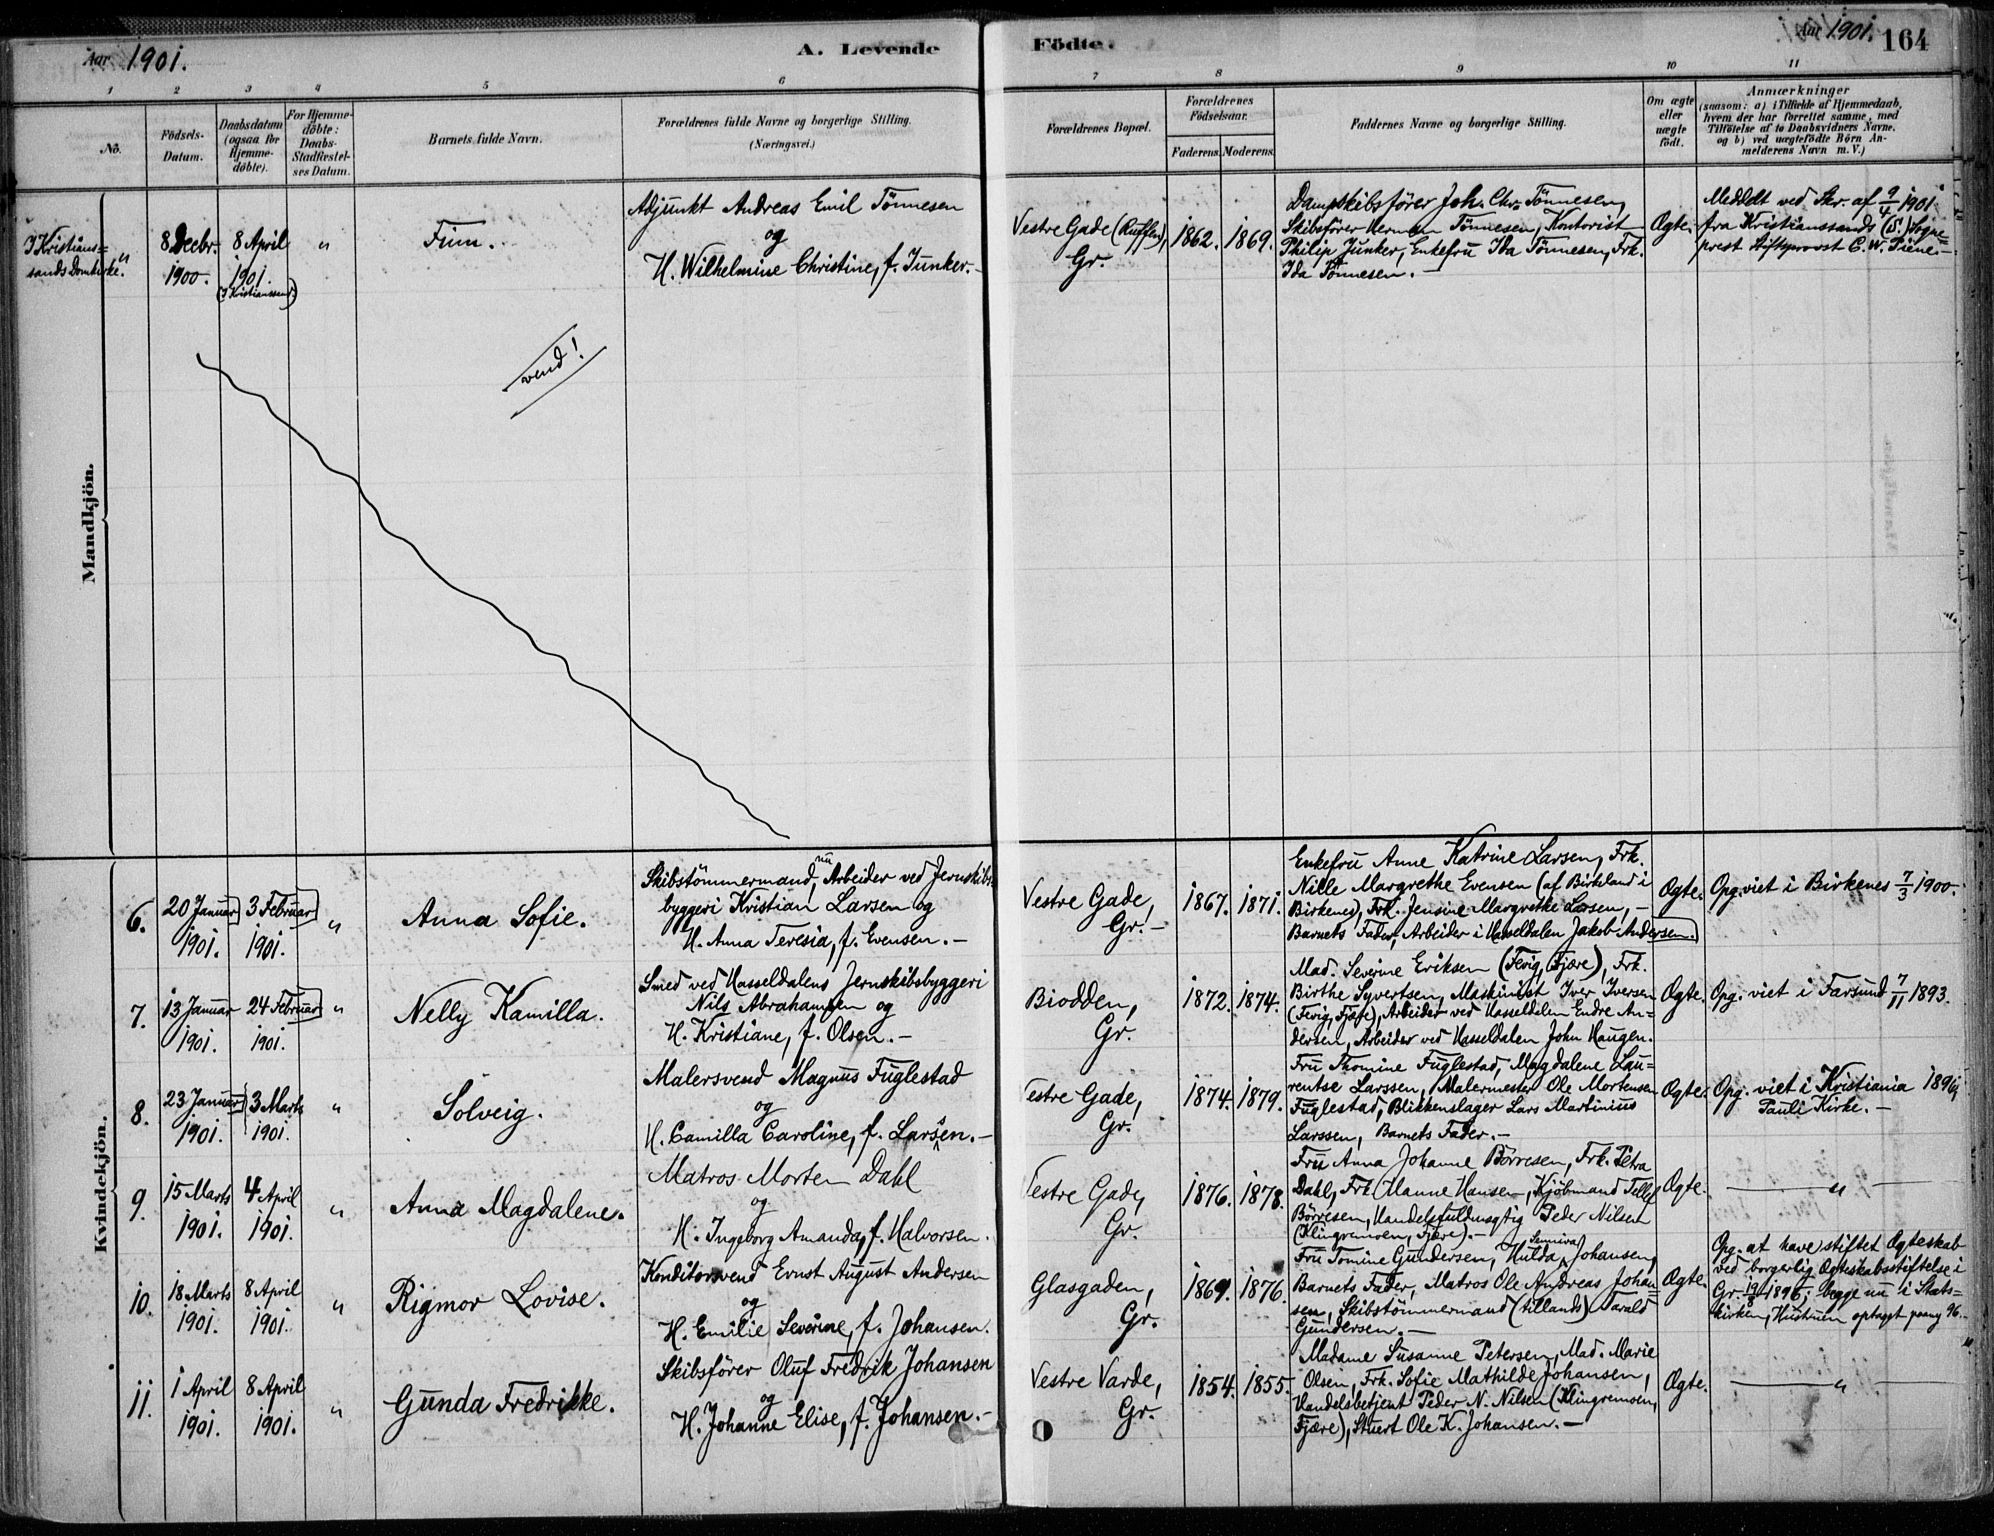 Aar 1901.
A. Levende
Födte.
Aar 1901.
164
1 2 3 4 5 6 7 8 9 10 11
No.
Födsels-
Datum.
Daabsdatum
(ogsaa for
Hjemme-
döbte).
For Hjemme-
döbte:
Daabs-
Stadfæstel-
ses Datum.
Barnets fulde Navn.
Forældrenes fulde Navne og borgerlige Stilling.
(Næringsvei.)
Forældrenes Bopæl.
Forældrenes
Födselsaar.
Faderens. Moderens.
Faddernes Navne og borgerlige Stilling.
Om ægte
eller
uægte
födt.
Anmærkninger
(saasom: a) i Tilfælde af Hjemmedaab,
hvem der har forrettet samme, med
Tilföielse af to Daabsvidners Navne,
og b) ved uægtefödte Börn An-
melderens Navn m. V.)
Mandkjön.
I Kristians=
sands Domkirke.
8 Decbr.
1900.
8 April
1901.
(I Kristianssand)
"
Finn.
Adjunkt Andreas Emil Tönnesen
og
H. Wilhelmine Christine, f. Junker.-
Vestre Gade
Gr.
1862.
1869.
Dampskibsförer Joh. Chr. Tönnesen,
Skibsförer Herman Tönnesen, Kontorist
Philip Junker, Enkefru Ida Tönnesen, Frk.
Ida Tönnesen. -
Ægte.
Meddelt ved Skr. af 9/4 1901
fra Kristianssands (S.) Sogne-
prest Stiftsprovst C. W.
vend!
Kvindekjön.
6.
20 Januar
1901.
3 Februar
1901.
"
Anna Sofie.
Skibstömmermand, nu Arbeider ved Jernskibs-
byggeri Kristian Larsen og
H. Anna Teresia, f. Evensen. -
Vestre Gade,
Gr. -
1867.
1871.
Enkefru Anne Katrine Larsen, Frk.
Nille Margrethe Evensen (af Birkeland i
Birkenes), Frk. Jensine Margrethe Larsen, -
Barnets Fader, Arbeider i Hasseldalen Jakob Andersen.
Ægte.
Opg. viet i Birkenes 7/3 1900.
7.
13 Januar
1901.
24 Februar
1901.
"
Nelly Kamilla.
Smed ved Hasseldalens Jernskibsbyggeri
Nils Abrahamsen og
H. Kristiane, f. Olsen. -
Biodden,
Gr.
1872.
1874.
Mad. Severine Eriksen (Fevig, Fjære), Frk.
Birthe Syvertsen, Maskinist Iver Iversen
(Fevig, Fjære), Arbeider ved Hasseldalen Endre An=
dersen, Arbeider ved Hasseldalen John Haugen.
Ægte.
Opg. viet i Farsund 7/11 1893.
8.
23 Januar
1901.
3 Marts
1901.
"
Solveig.
Malersvend Magnus Fuglestad
og
H. Camilla Caroline, f. Larsen. -
Vestre Gade,
Gr.
1874.
1879.
Fru Thomine Fuglestad, Magdalene Lau-
rentse Larssen, Malermester Ole Mortensen
Fuglestad, Blikkenslager Lars Martinius
Larssen, Barnets Fader. -
Ægte.
Opg. viet i Kristiania
Pauli Kirke. -
9.
15 Marts
1901.
4 April
1901.
"
Anna Magdalene.
Matros Morten Dahl
og
H. Ingeborg Amanda, f. Halvorsen.
Vestre Gade,
Gr.
1876.
1878.
Fru Anna Johanne Börresen, Frk. Petra
Dahl, Frk. Hanne Hansen, Kjöbmand Tellef
Börresen, Handelsfuldmægtig Peder Nilsen
(Klingremoen, Fjære). -
Ægte.
— " —
10.
18 Marts
1901.
8 April
1901.
"
Rigmor Lovise.
Konditorsvend Ernst August Andersen
og
H. Emilie Severine, f. Johansen.
Glasgaden,
Gr.
1869.
1876.
Fru Tomine Gundersen, Hulda Johansen,
Barnets Fader, Matros Ole Andreas Johan=
sen, Skibstömmermand (tillands) Tarald
Gundersen. -
Ægte.
Opg. at have stiftet Ægteskab
ved borgerlig Ægteskabsstiftelse i
Gr. 19/8 1896; begge nu i Stats-
kirken, Hustruen optaget 96.
11.
1 April
1901.
8 April
1901.
"
Gunda Fredrikke.
Skibsförer Oluf Fredrik Johansen
og
H. Johanne Elise, f. Johansen. -
Vestre Varde,
Gr.
1854.
1855.
Madame Susanne Petersen, Mad. Marie
Olsen, Frk. Sofie Mathilde Johansen,
Handelsbetjent Peder N. Nilsen (Klingremoen,
Fjære), Stuert Ole K. Johansen. -
Ægte.
— " —